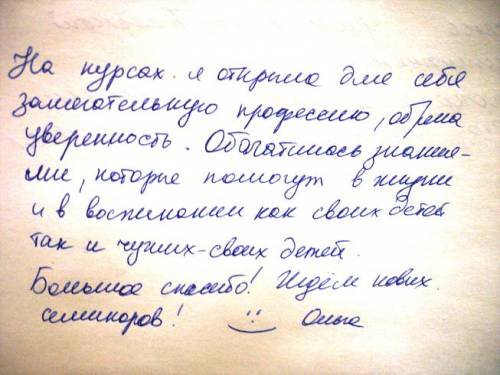 На курсах я открыла для себя
замечательную профессию, обрела
уверенность. Обогатилась знания-
ми, которые помогут в жизни
и в воспитании как своих детей
так и чужих-своих детей.
Большое спасибо! Ждём новых
семинаров! Ольга